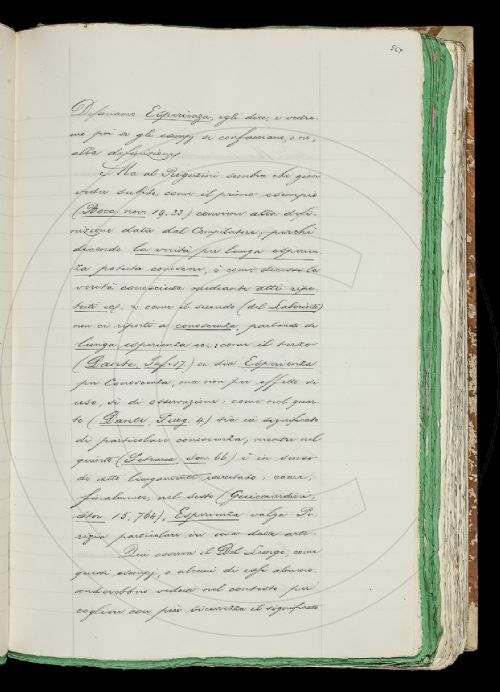 567
Definiamo Esperienza, egli dice, e vedre-
mo poi se gli esempj si confacciano, o no,
alla definizione.
Ma al Rigutini sembra che giovi
veder subito, come il primo esempio
(Bocc. nov. 19. 33) conviene alla defi-
nizione data dal Compilatore, perchè
dicendo la verità per lunga esperien-
za potuta conoscere, è come dicesse la
verità conosciuta mediante atti ripe-
tuti ec.; come il secondo (del Laberinto)
non ci riporti a conoscenza, parlando di
lunga esperienza ec.; come il terzo
(Dante, Inf. 17.) ci dia Esperienza
per Conoscenza, ma non per effetto di
uso, sì di osservazione; come nel quar-
to (Dante, Purg. 4) sia in significato
di particolare conoscenza, mentre nel
quinto (Petrarca, son. 66) è in senso
di atto lungamente esercitato; come,
finalmente, nel sesto (Guicciardini,
stor. 15, 764), Esperienza valga Pe-
rizia particolare in cosa dalla arte.
Qui osserva il Del Lungo, come
questi esempj, o alcuni di essi almeno,
andrebbero veduti nel contesto per
cogliere con più sicurezza il significato